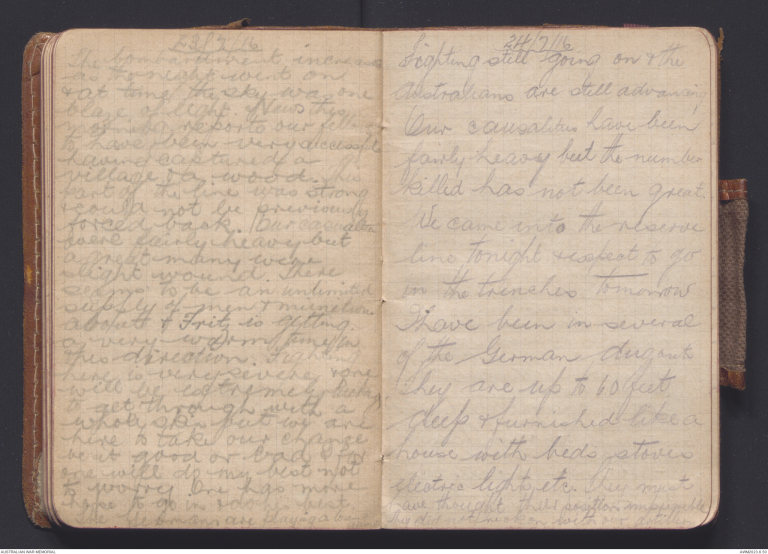 23/7/16
The bombardment increased
as the night went on
& at time the sky was one
blaze of light. News this
morning reports our fellows
to have been very successful
having captured a
village & a wood. This
part of the line was strong
& could not be previously
forced back. Our casualties
were fairly heavy but
a great many were
slight wound. There
seems to be an unlimited
supply of men & munitions
about & Fritz is getting
a very warm time in
this direction. Fighting
here is very severe & one
will be extremely lucky
to get through with a
whole skin but we are
here to take our chance
be it good or bad & I for
one will do my best not
to worry. One has mere
to go in & do his best.
are playing a
24/7/16
Fighting still going on & the
Australians are still advancing
Our causalities have been
fairly heavy but the number
killed has not been great.
We came into the reserve
line tonight & expect to go
in the trenches tomorrow
I have been in several
of the German dugouts
They are up to 60 feet
deep & furnished like a
house with beds, stoves
electric light, etc. They must
have thought their position impregnable
with our
AUSTRALIAN WAR MEMORIAL